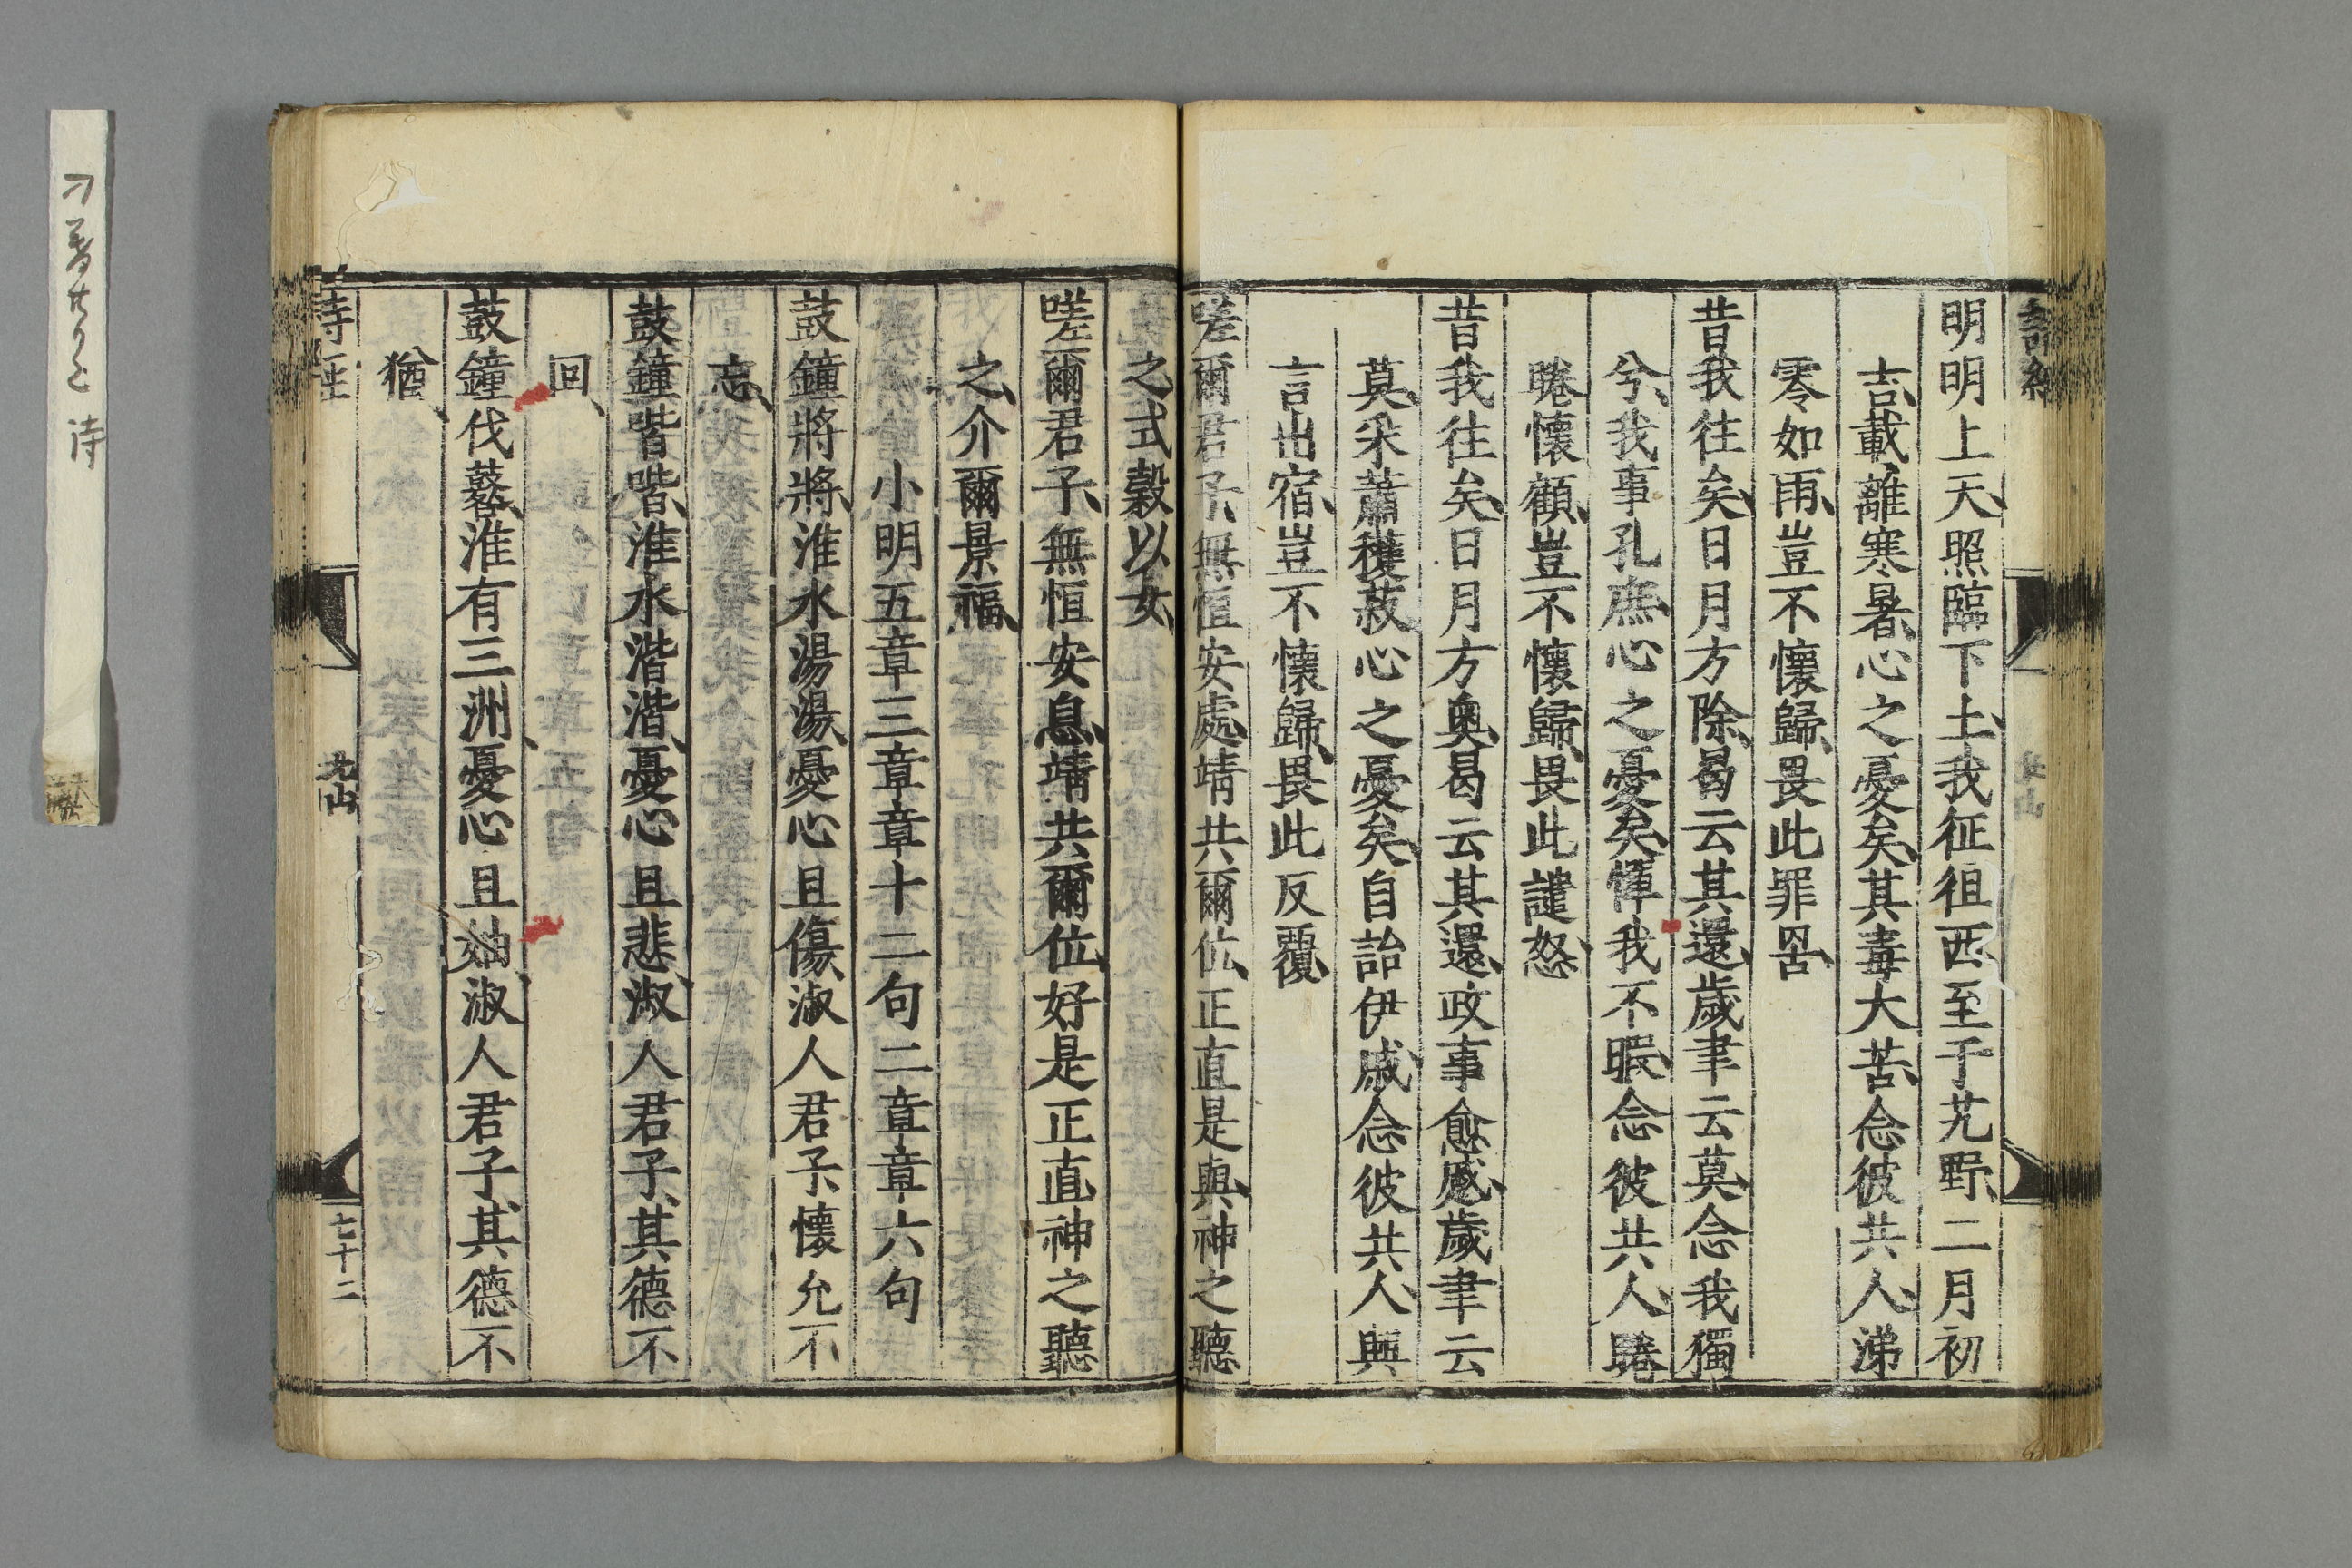 明明上天、照臨下土、我征徂西至于艽野、二月初
吉、載離寒暑、心之憂矣、其毒大苦、念彼共人、涕
零如雨、豈不懷歸、畏此罪罟
昔我往矣、日月方除、曷云其還、歲聿云莫、念我獨
兮、我事孔庶、心之憂矣、憚我不暇、念彼共人、睠
睠懷顧、豈不懷歸、畏此譴怒、
昔我往矣、日月方奧、曷云其還、政事愈蹙、歲聿云
莫、采蕭穫菽、心之憂矣、自詒伊戚、念彼共人、興
言出宿、豈不懷歸、畏此反覆、
嗟爾君子、無恒安處、靖共爾位、正直是與、神之聽
之、式穀以女、
嗟爾君子、無恒安息、靖共爾位、好是正直神之聽
之、介爾景福、
小明五章三章章十二句二章章六句
鼓鐘將將、淮水湯湯、憂心且傷、淑人君子懷允不
忘、
鼓鐘喈喈、淮水湝湝、憂心且悲、淑人君子、其德不
回、
鼓鐘伐鼛、淮有三洲、憂心且妯、淑人君子、其德不
猶、
詩經
七十二